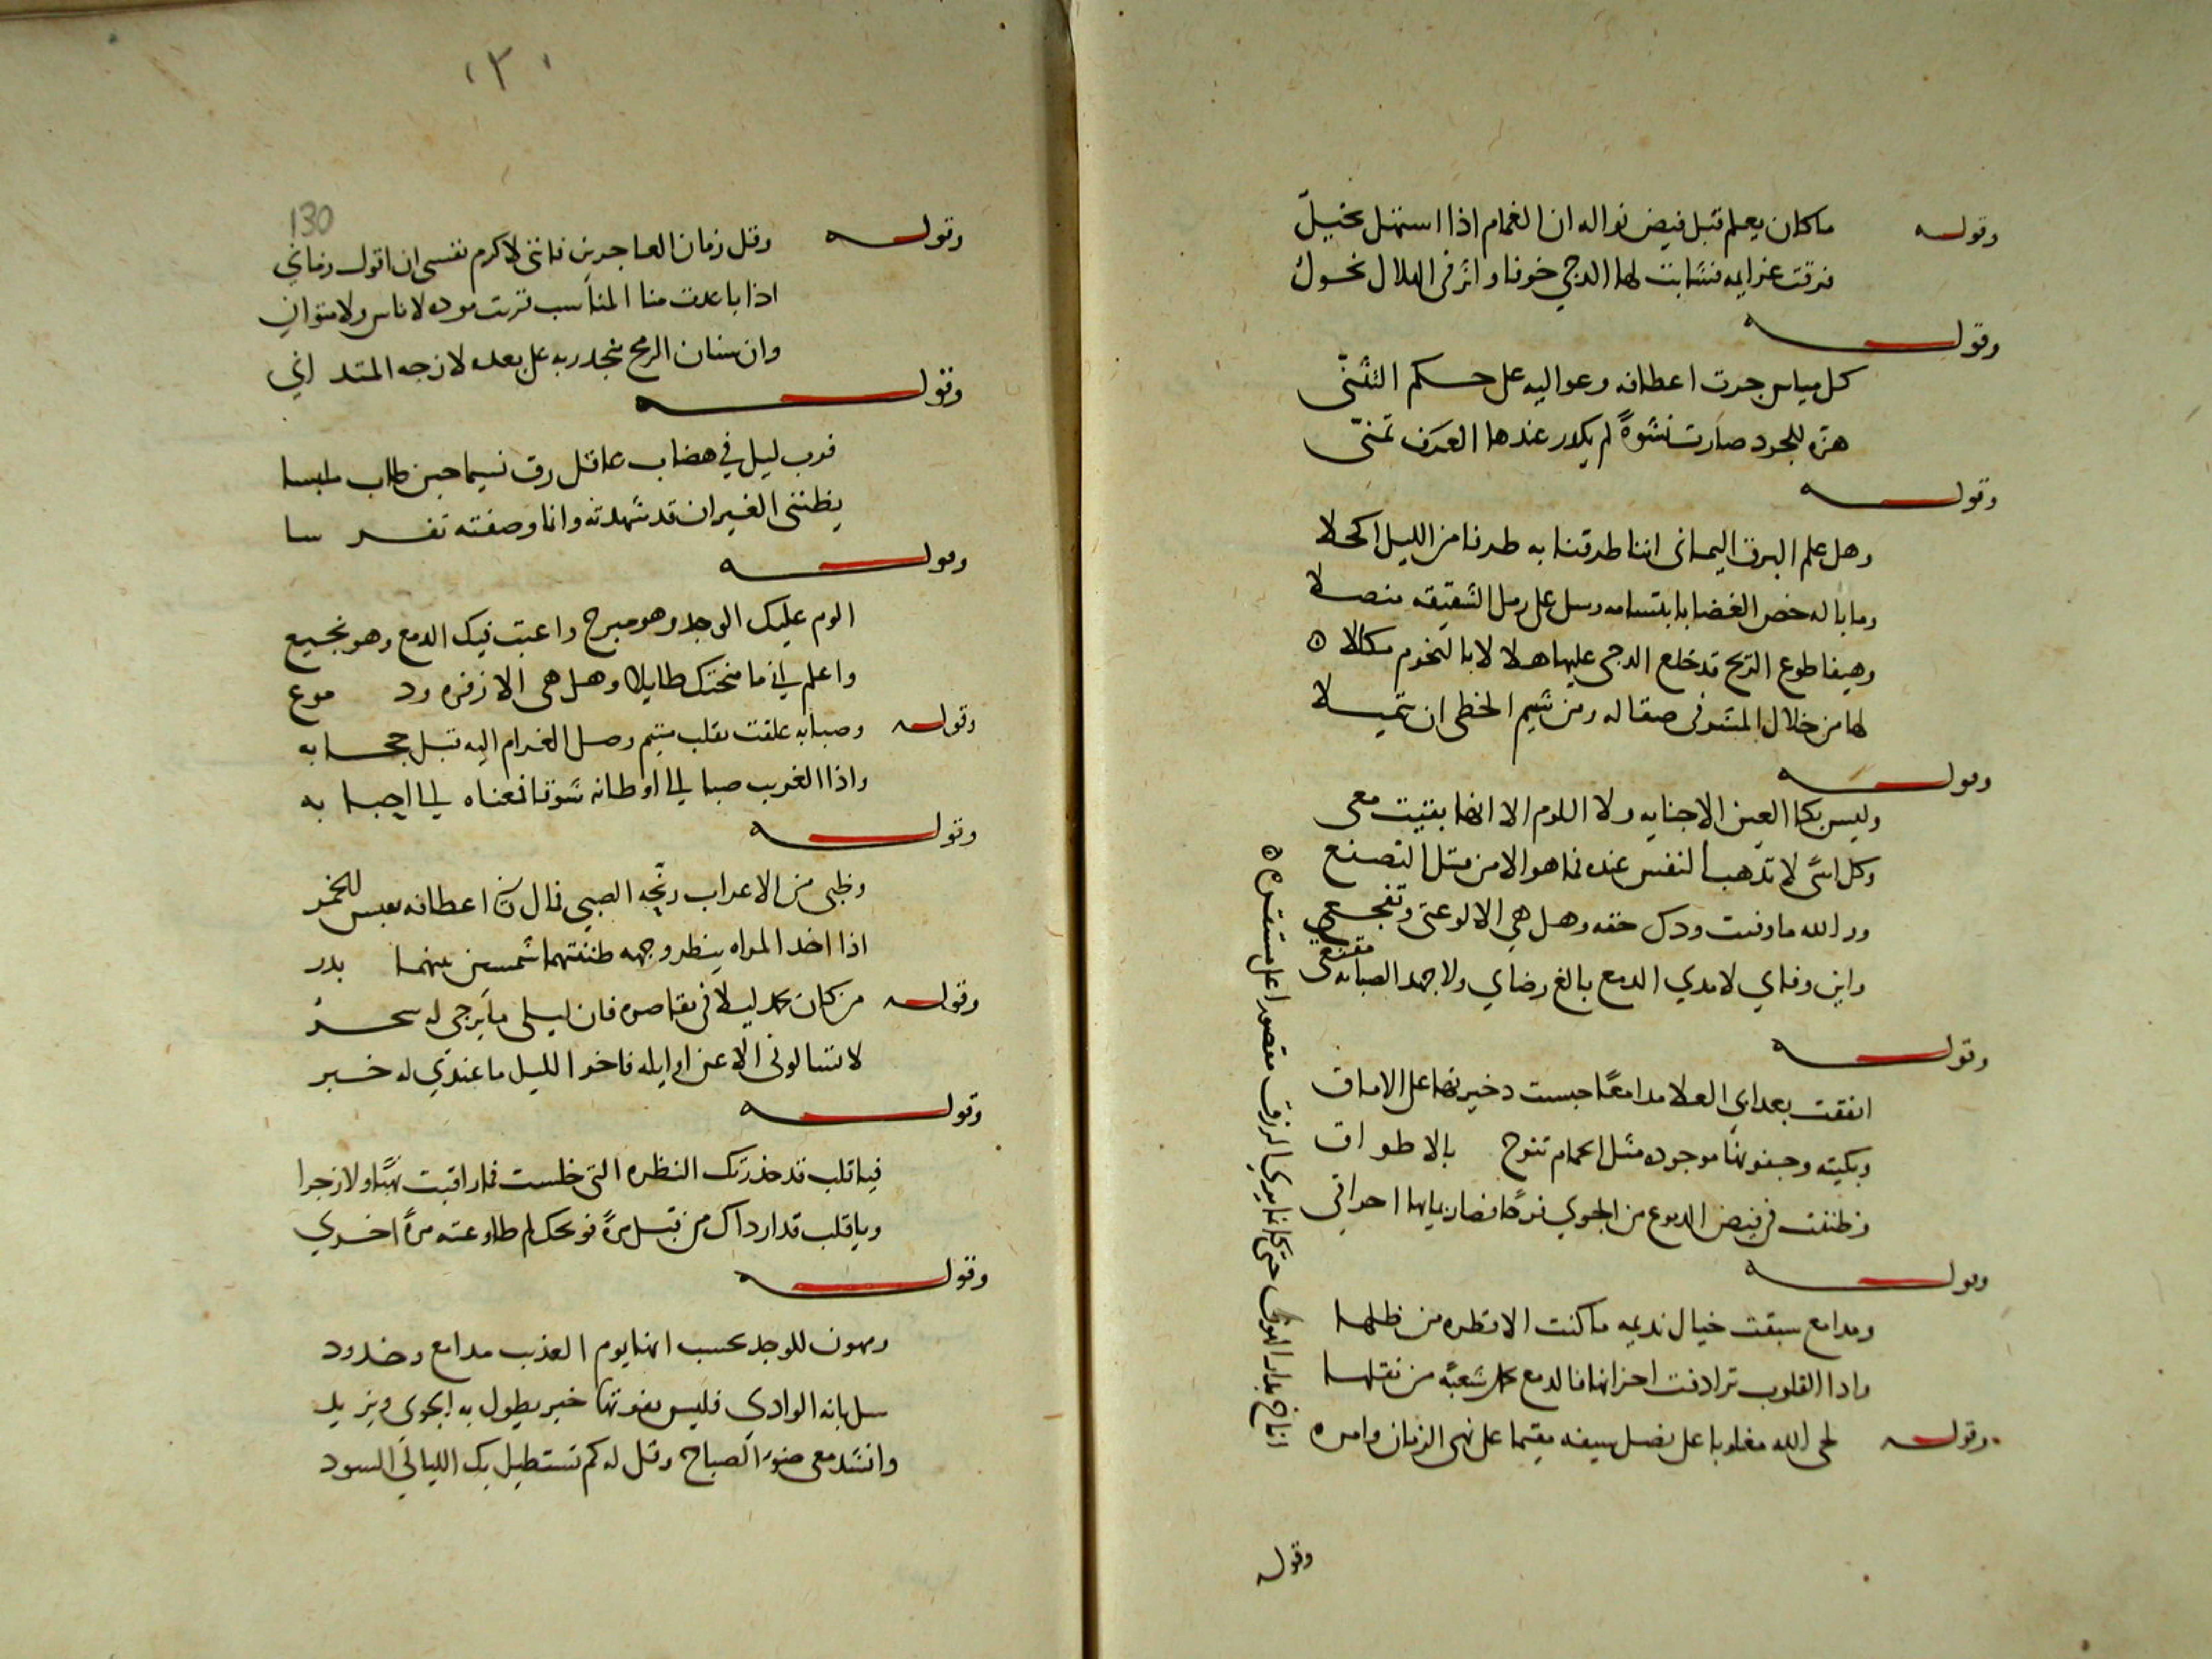 وقوله ما كان يعلم قبل فيض نواله ان الغمام اذا استهل بخيل
فرقت عزايمه فشابت لها الدجي خوفا واثر في الهلال نحول
وقوله
كل مياس جرت اعطافه وعواليه على حكم التثنى
هزه للجود صارت نشوةً لم يكدر عندها العرف بمنى
وقوله
وهل علم البرق اليمانى اننا طرقنا به طرفا من الليل اكحلا
وما باله خص الغضا بابتسامه وسل على رمل الشقيقه منصلا
وهيفا طوع الريح قد خلع الدجى عليها هلالا بالنجوم مكللا ٥
لها من خلال المشرفى صقاله ومن شيم الخطى ان يتميلا
وقوله
وليس بكا العين الا جنايه ولا اللوم الا انها بقيت معى
وكل اسًى لا تذهب النفس عنده فما هو الا من مثل التصنع
ود الله ما وفيت ودك حقه وهل هي الا لوعتى وتفجعي
واين وفاي لا مدي الدمع بالغ رضاي ولا جهد الصبابه مقنعي
وقوله
انفقت بعد ابي العلا مدامعًا حبست ذخيرتها على الاماق
وبكيته وجفونها موجوده مثل الحمام تنوح بالاطواق
وظننت في فيض الدموع من الجوي فرجًا فصار بمايها احراقي
وقوله
ومدامع سبقت خيال نديمه ما كنت الا قطره من طلها
واذا القلوب ترادفت احزانها فالدمع كل شعبةً من ثقلها
وقوله لحى الله مغلوبا على نصل سيفه مقيما على نهى الزمان وامره
اناخ بدار الهون حتى كانما يري الرزق مقصورا على مستقره ٥
وقوله
١٣٠
130
وقوله وقل زمان العاجزين فاننى لاكرم نفسى ان اقول زماني
اذا باعدت منا المناسب قربت موده لا ناس ولا متواني
وان سنان الرمح ينجد ربه على بعده لا زجه المتداني
وقوله
فرب ليل في هضاب عاقل رق نسيما حين طاب ملبسا
يظننى الغيران قد شهدته وانا وصفته تفرسا
وقوله
الوم عليك الوجد وهو مبرح واعتب فيك الدمع وهو نجيع
واعلم اني ما منحتك طايلا وهل هي الا زفره ودموع
وقوله وصبابه علقت بقلب متيم وصل الغرام اليه قبل حجابه
واذا الغريب صبا الى اوطانه شوقا فمعناه الى احبابه
وقوله
وظبى من الاعراب رنحه الصبي فمال كان اعطافه للخمر
اذا اخذ المراه ينظر وجهه ظننتهما شمسين بينهما بدر
وقوله من كان يحمد ليلا في تقاصره فان ليلى ما يرجى له سحر
لا تسالونى الا عن اوايله فاخر الليل ما عندي له خبر
وقوله
فيا قلب قد حذرتك النظره التى خلست فما راقبت نهيًا ولا زجرا
ويا قلب قد ارداك من قبل مرةً فويحك لم طاوعته مرةً اخري
وقوله
ومهون للوجد يحسب انها يوم العذيب مدامع وخدود
سل بانه الوادي فليس يفوتها خبر يطول به الجوي ويزيد
وانشد معى ضوء الصباح وقل له كم تستطيل بك الليالي السود